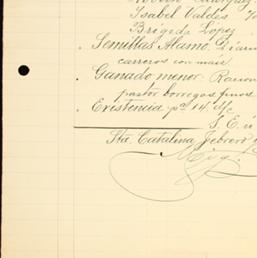 Isabel Valdés
Brígida López
Semillas Alamo. Diario
carreros con maiz
Ganado menor. Racion
pastor borregos finos
Existencia pa 14. Mc
S. E. ú
Sta. Catalina, Febrero